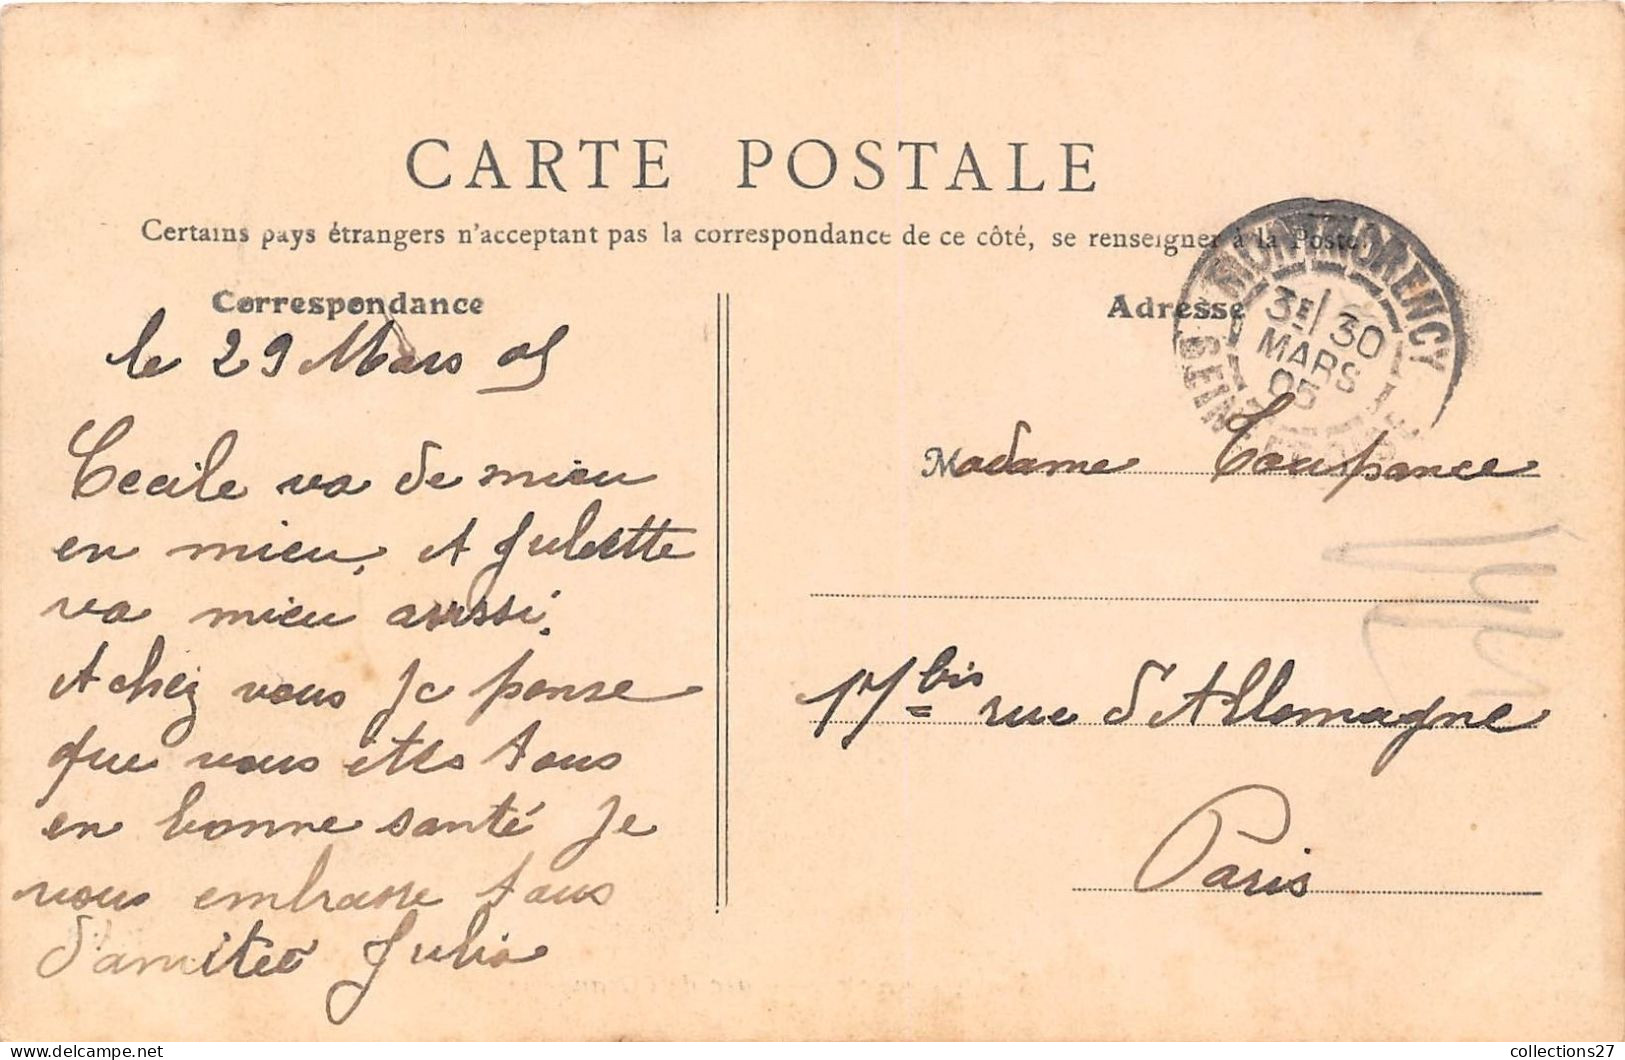 CARTE POSTALE
Certains pays étrangers n'acceptent pas la correspondance de ce côté, se renseigner à la Poste
Correspondance
le 29 Mars 05
Cecile va de mieu
en mieu. et Juliette
va mieu aussi.
et chez vous Je pense
que vous êtes tous
en bonne santé Je
vous embrasse tous
d'amitée Julia
Adresse
MONTMORENCY
3E/ 30
MARS
05
SEINE-ET-OISE
Madame Coupance
17 bis rue d'Allemagne
Paris
collections27